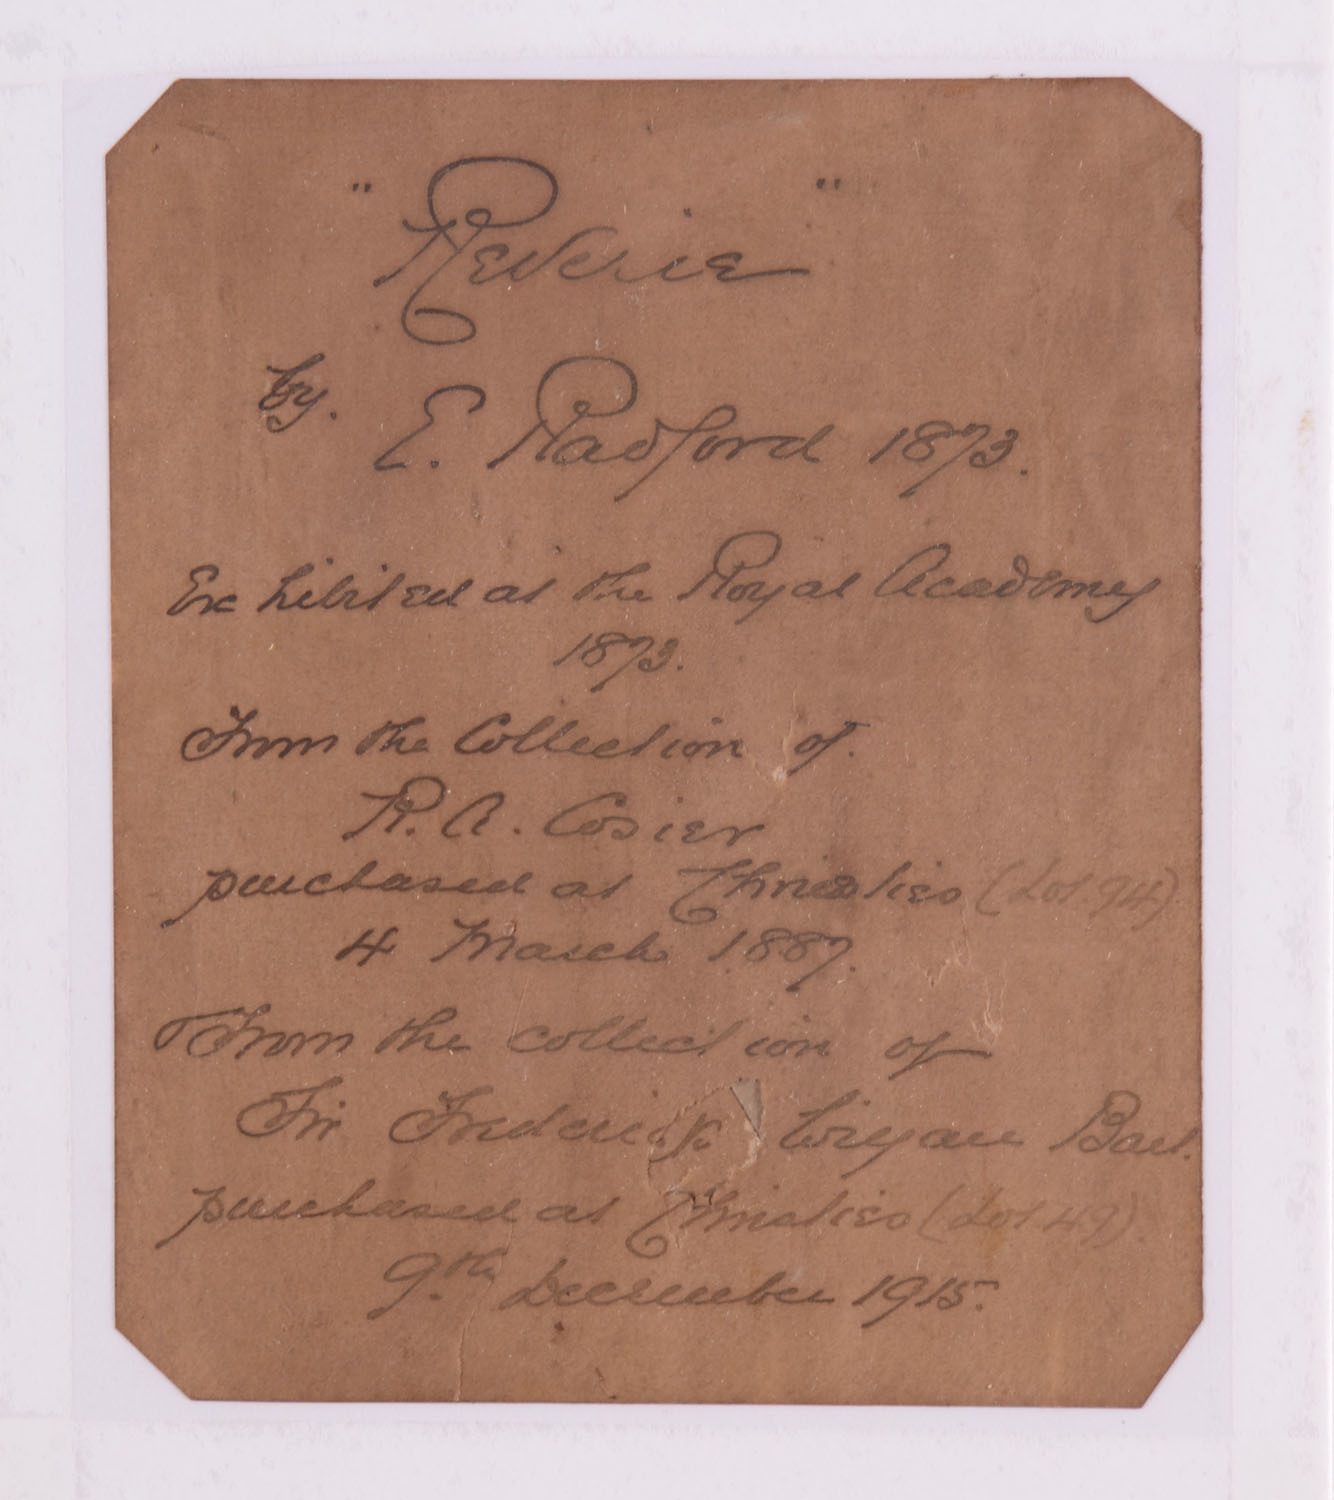 "Reverie"
by. E. Radford 1873.
Exhibited at the Royal Academy
1873.
From the Collection of.
R. A. Cosier
purchased at Christies (Lot. 94)
4 March 1887.
From the collection of
Sir Frederick Bart.
purchased at Christies (Lot 49).
9th December 1915.